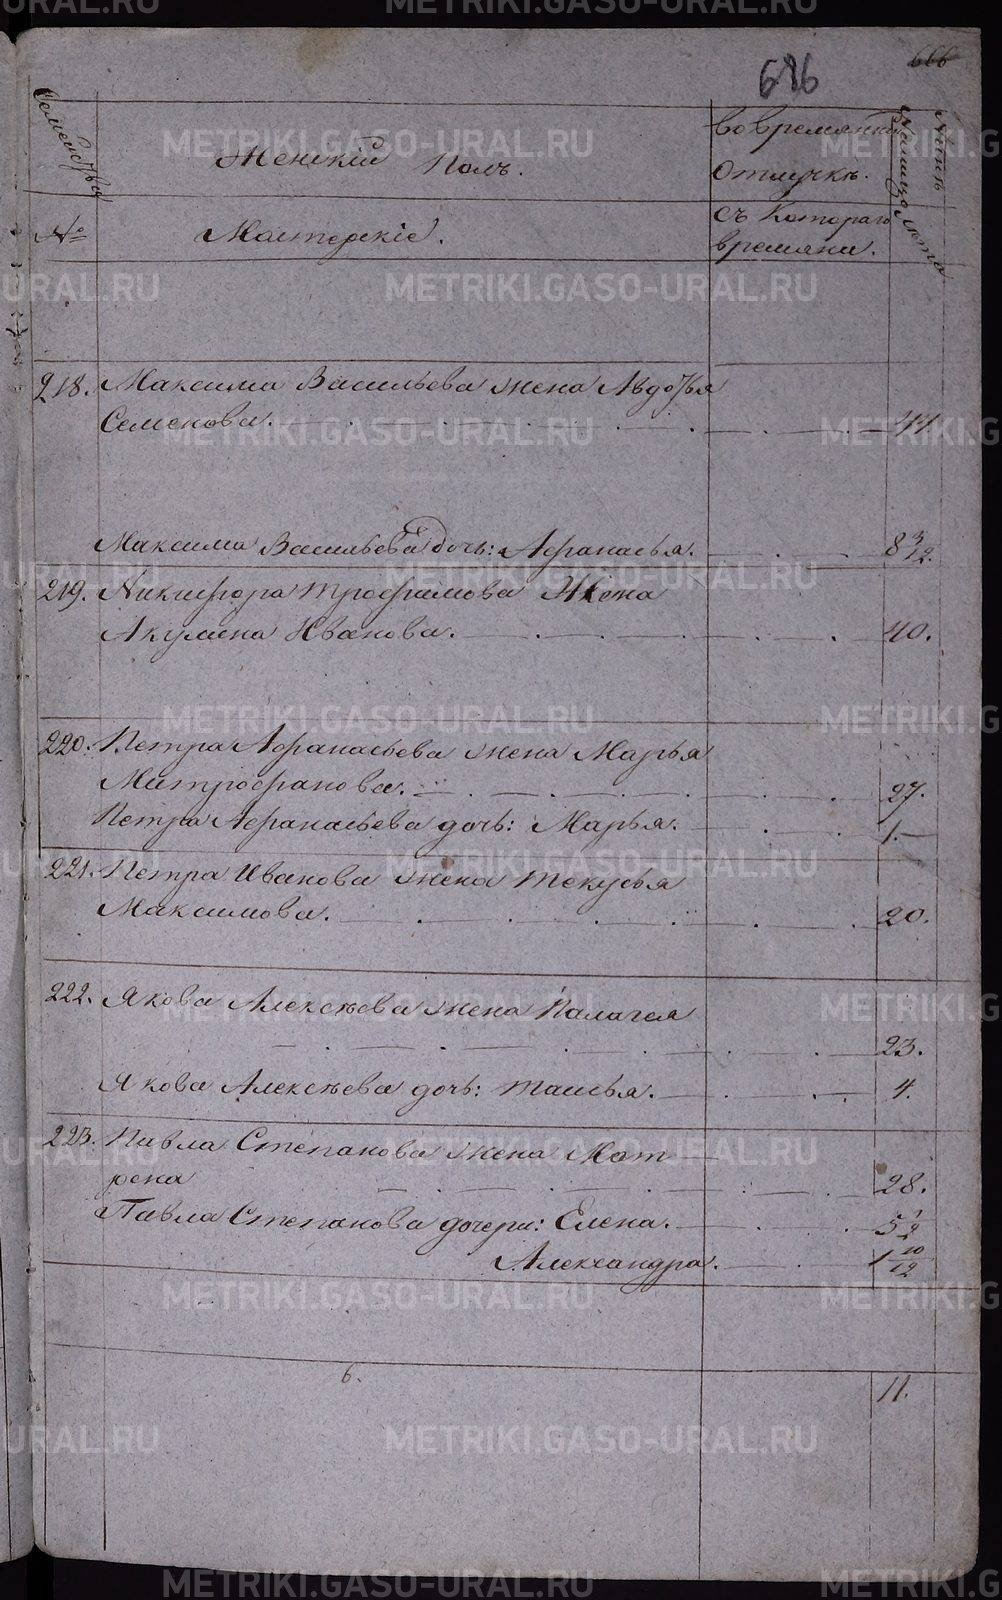 666
686
Семейства
Женскій Полъ.
Во времянной
Отлучкѣ.
№
Мастерскіе.
съ Котораго
времяни.
Нынѣ
Налицо
лѣта
218. Максима Васильева жена Авдотья
Семенова. 44
Максима Васильева дочь: Афанасья. 8 3/12.
219. Никифора Трофимова Жена
Акулина Иванова. 40.
220. Петра Афанасьева жена Марья
Митрофанова. 27.
Петра Афанасьева дочь: Марья. 1.
221. Петра Иванова жена Текусья
Максимова. 20.
222. Якова Алексѣева жена Палагея
23.
Якова Алексѣева дочь: Таисья. 4.
223. Павла Степанова жена Мат
рена 28.
Павла Степанова дочери: Елена. 5 1/2
Александра. 1 10/12
6. 11.
METRIKI.GASO-URAL.RU